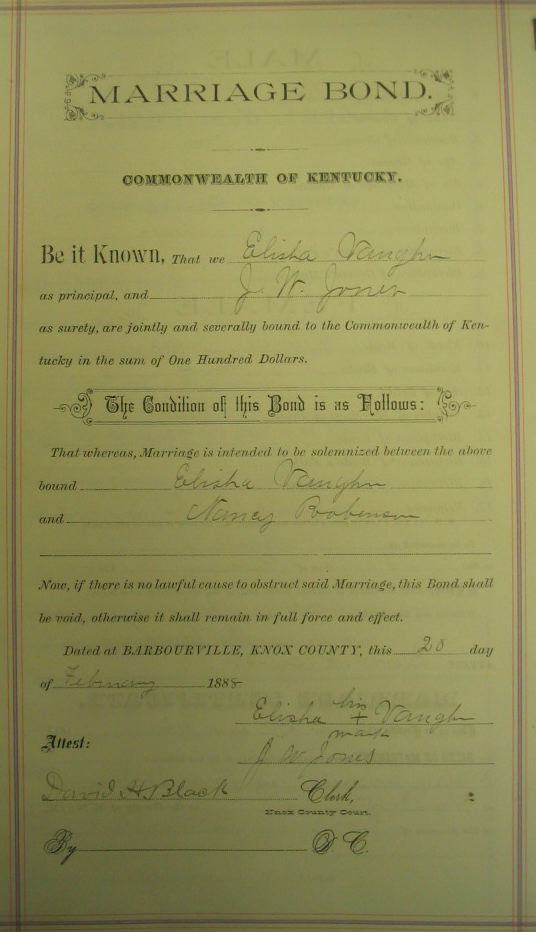 MARRIAGE BOND.
COMMONWEALTH OF KENTUCKY.
Be it Known, That we Elisha Vaughn
as principal, and J. W. Jones
as surety, are jointly and severally bound to the Commonwealth of Ken-
tucky in the sum of One Hundred Dollars.
The Condition of this Bond is as Follows:
That whereas, Marriage is intended to be solemnized between the above
bound Elisha Vaughn
and Nancy Robinson
Now, if there is no lawful cause to obstruct said Marriage, this Bond shall
be void, otherwise it shall remain in full force and effect.
Dated at BARBOURVILLE, KNOX COUNTY, this 20 day
of February 1888
his
Elisha + Vaughn
mark
Attest:
J W Jones
David H. Black Clerk,
Knox County Court.
By D. C.